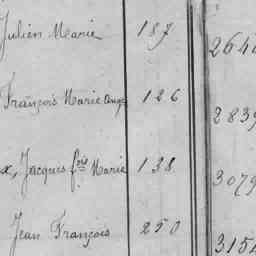 Julien Marie 187 264
François Marie Ange 126 2839
x, Jacques fois Marie 138 3079
Jean François 250 315